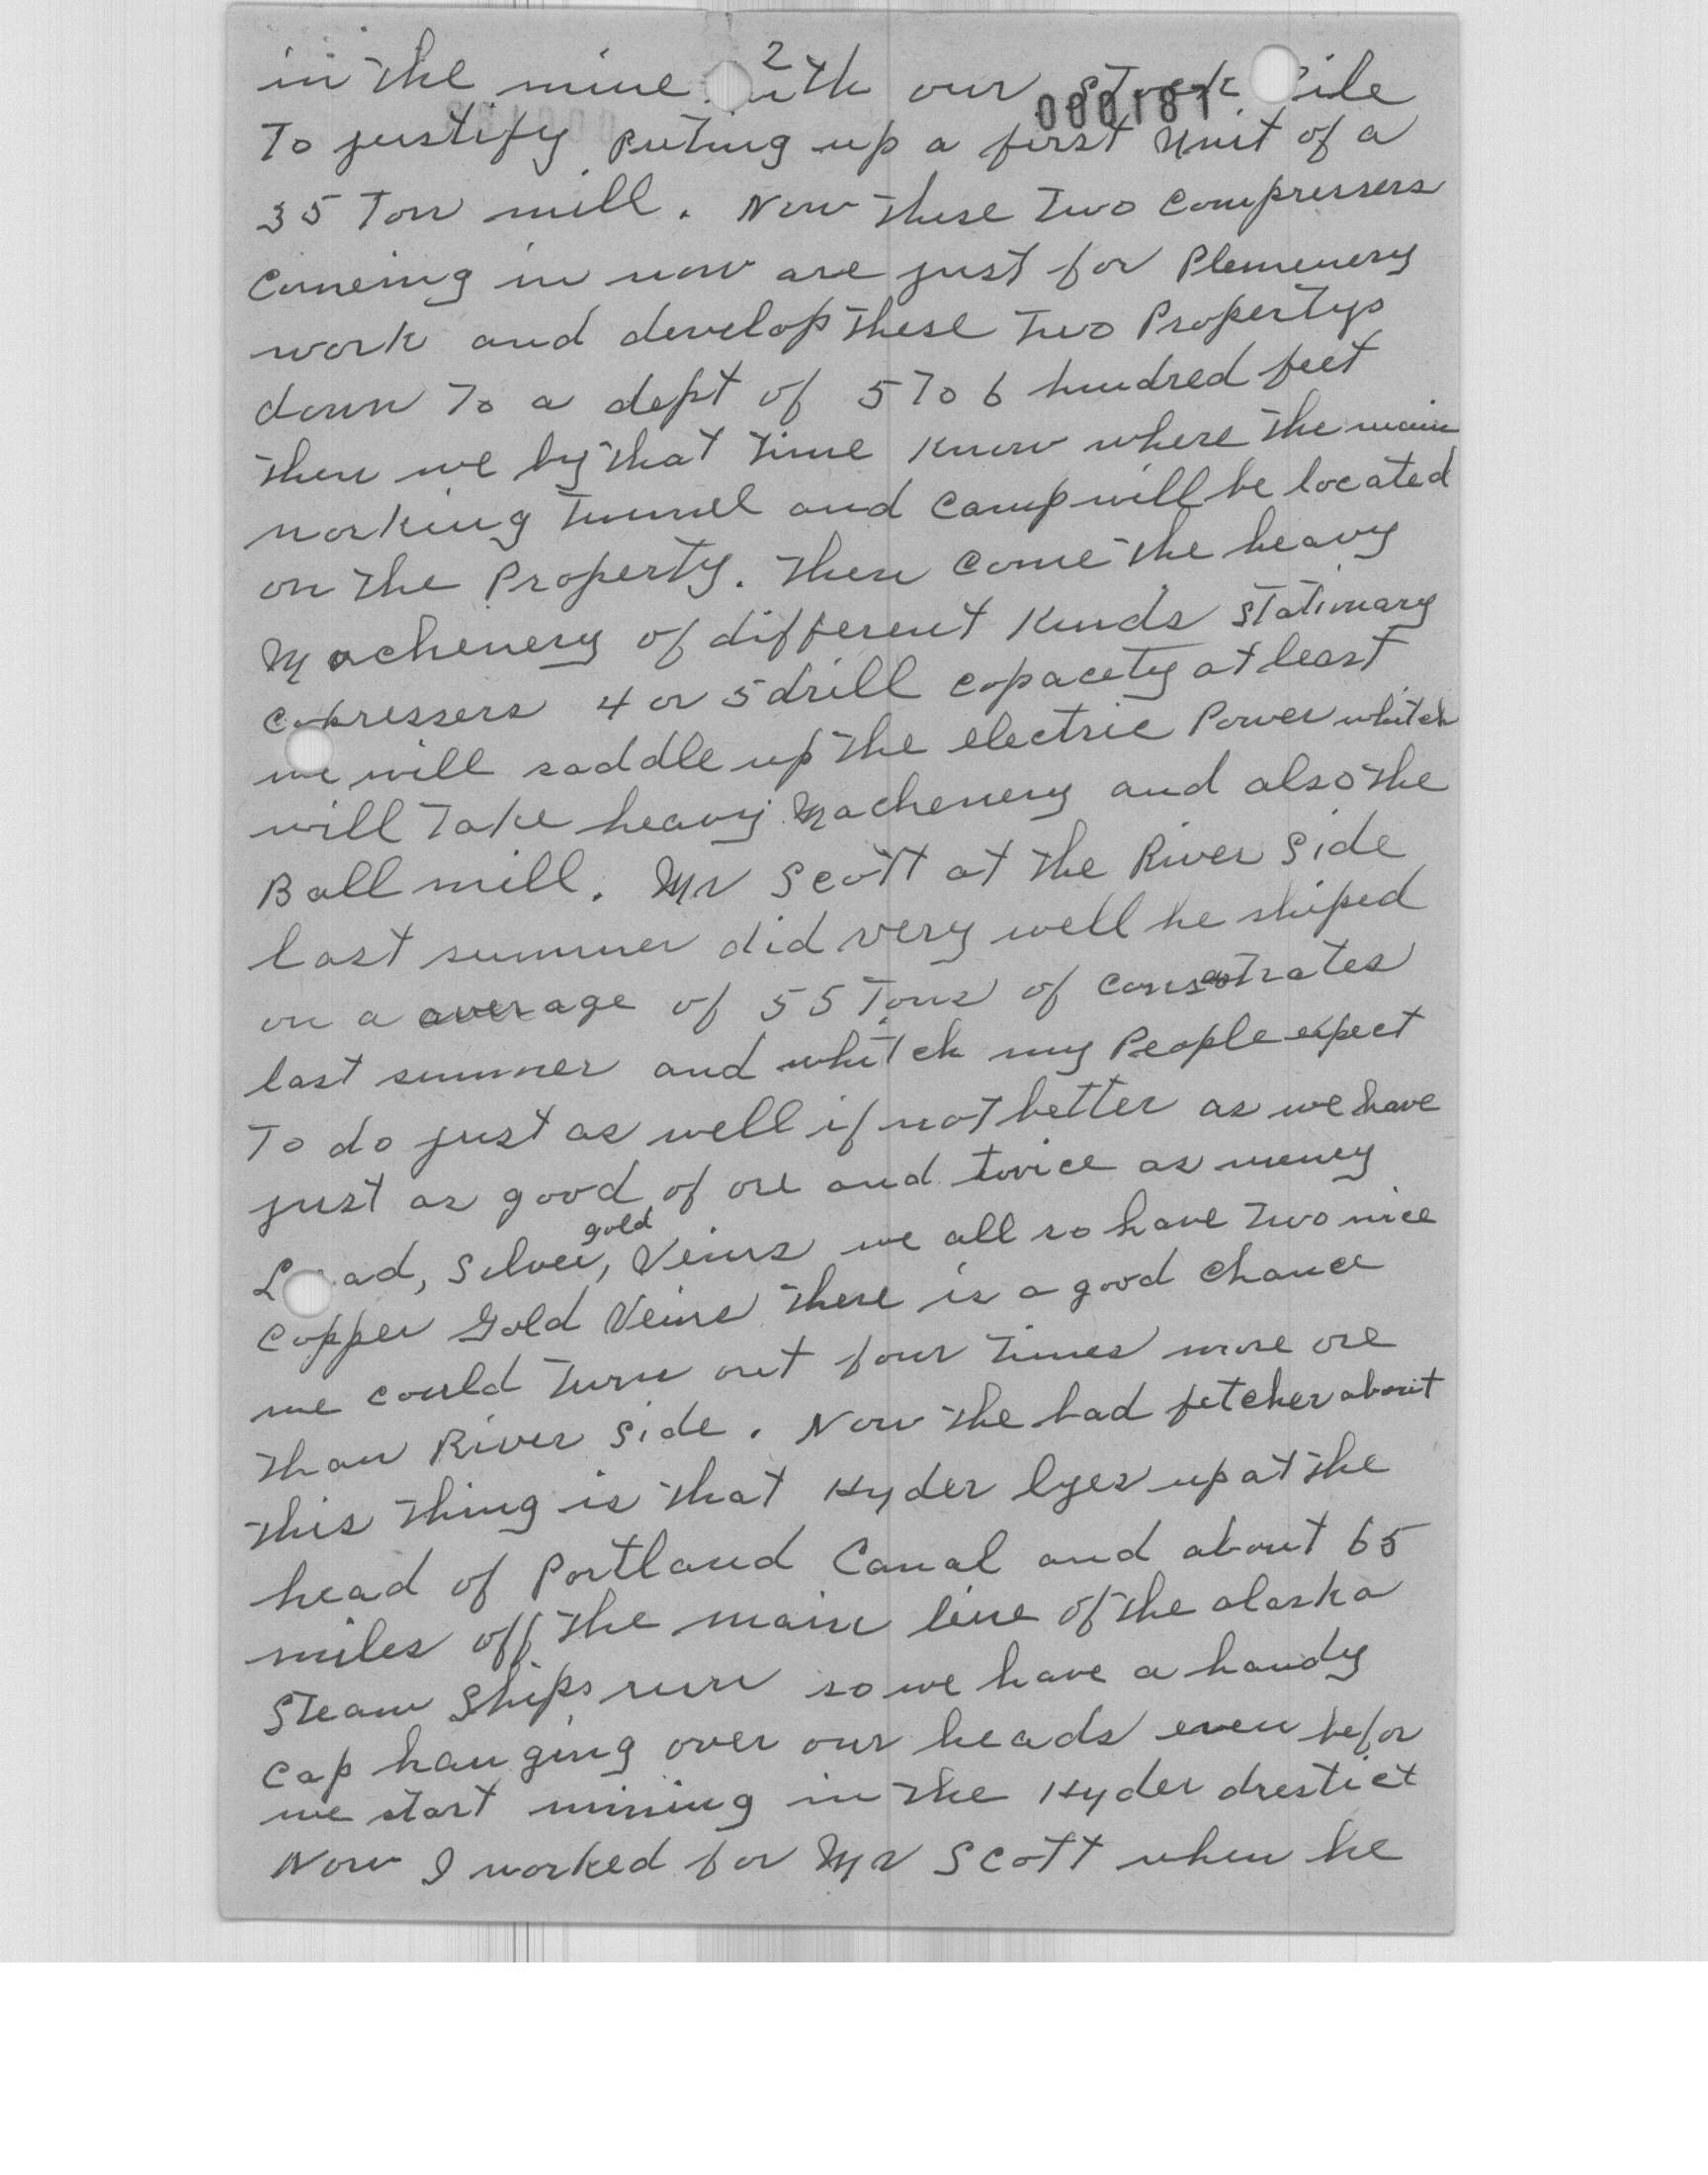 2
000181
in the mine with our stock Pile
To justify Puting up a first Unit of a
35 Ton mill. Now these Two Compressers
Comeing in now are just for Plemenery
work and develop these Two Propertys
down To a dept of 5 To 6 hundred feet
then we by that Time Know where the main
working Tunnel and Camp will be located
on the Property. then Come the heavy
Machenery of different Kinds stationary
compressers 4 or 5 drill capacety at least
we will saddle up the electric Power whitch
will Take heavy Machenery and also the
Ball mill. Mr Scott at the River Side
last summer did very well he shiped
on a average of 55 Tons of Consatrates
last summer and whitch my People expect
To do just as well if not better as we have
just as good of ore and twice as meney
gold
Lead, Silver, Veins we all so have Two nice
Copper Gold Veins there is a good chance
we could Turn out four Times more ore
than River Side. Now the bad fetcher about
this thing is that Hyder lyes up at the
head of Portland Canal and about 65
miles off the main line of the alaska
Steam Ships run so we have a handy
cap hanging over our heads even befor
we start mining in the Hyder drestict
Now I worked for Mr Scott when he